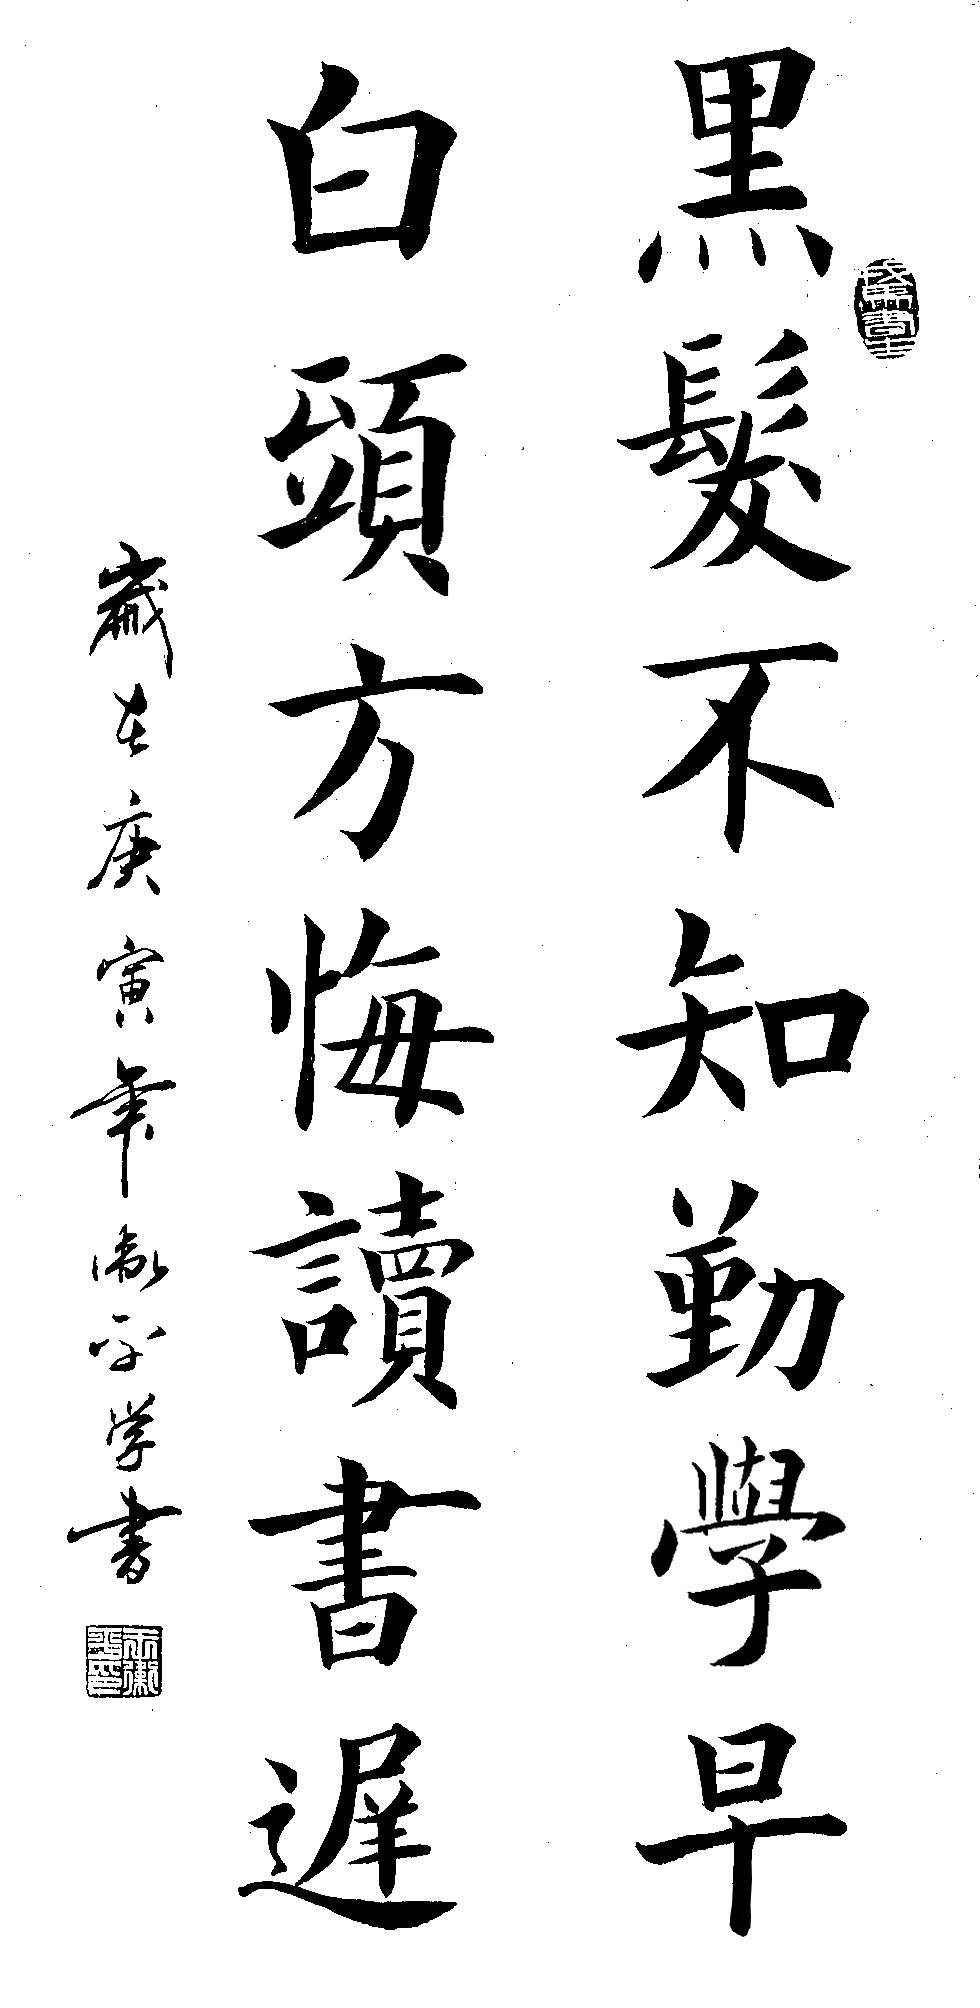 黑髮不知勤學早
白頭方悔讀書遲
歲在庚寅年衡平学書